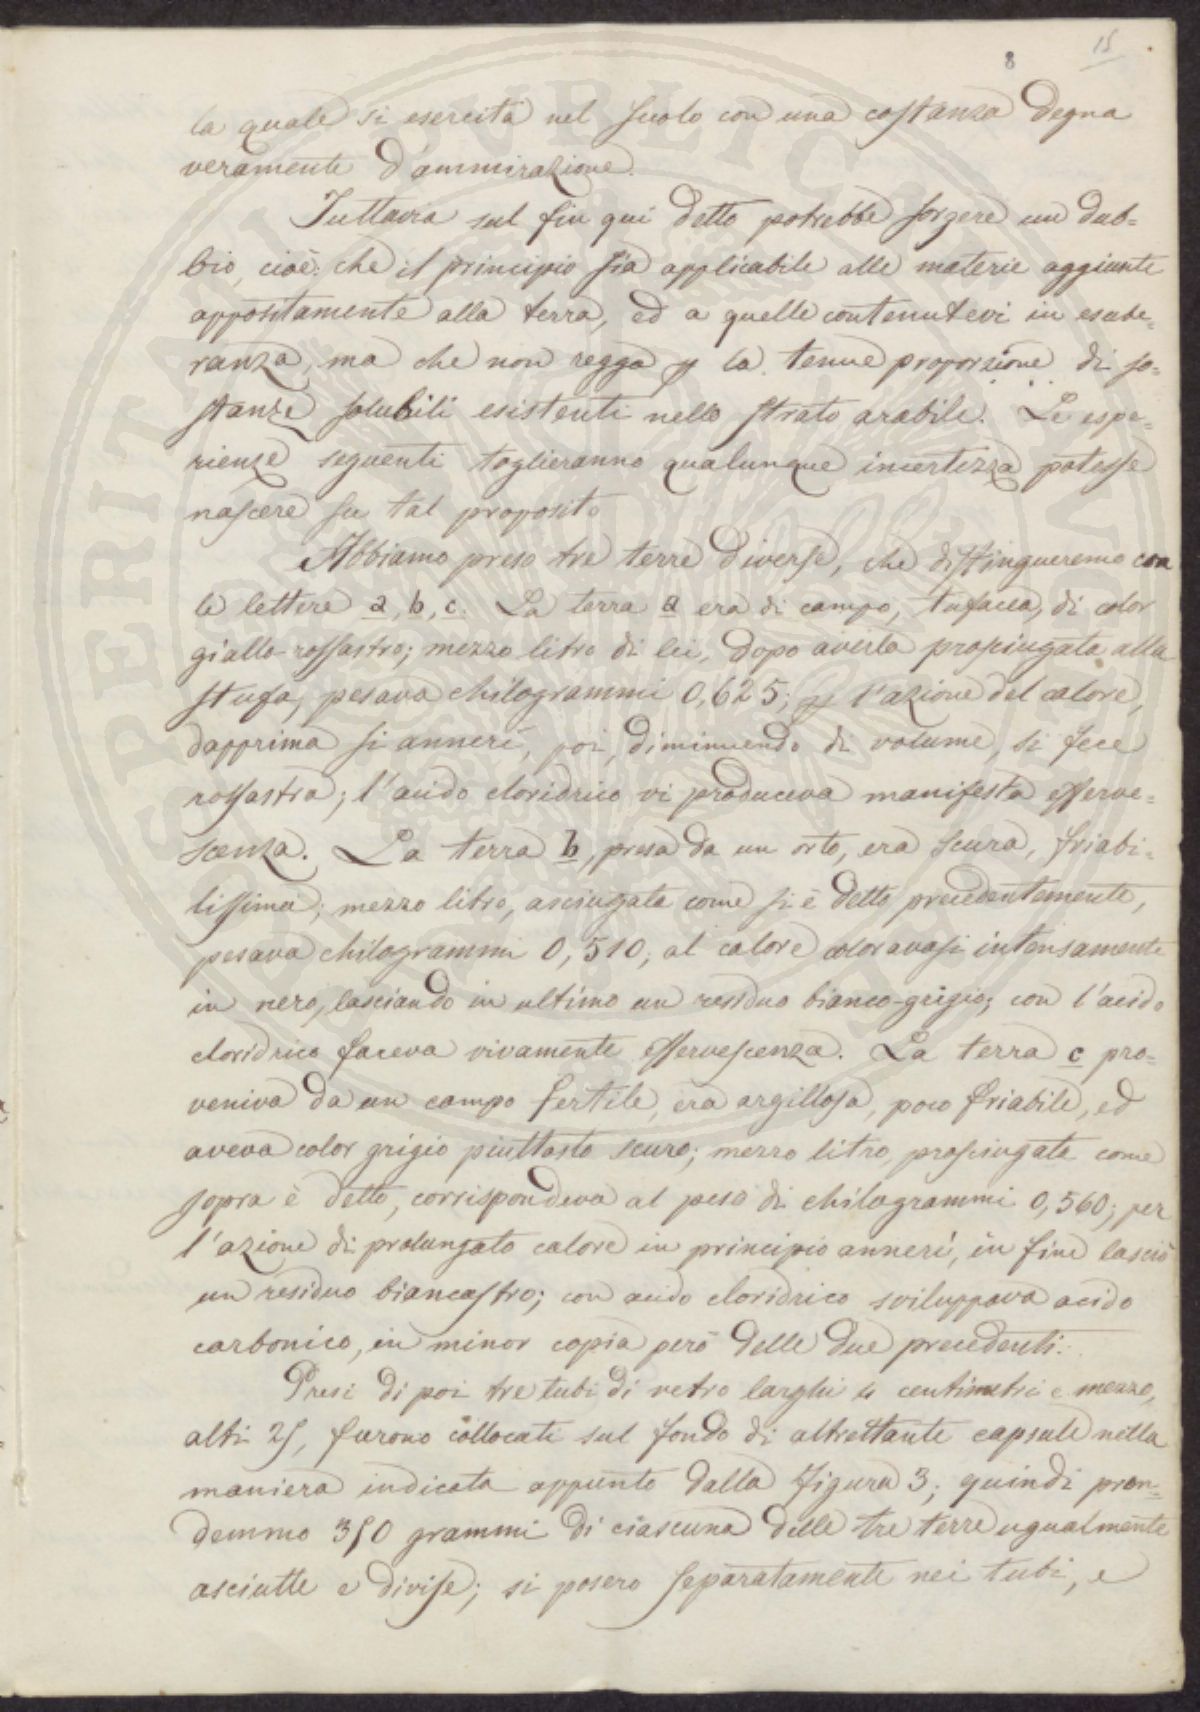 8 15
la quale si esercita nel suolo con una costanza degna
veramente d'ammirazione.
Tuttavia sul fin quì detto potrebbe sorgere un dub-
bio, cioè: che il principio sia applicabile alle materie aggiunte
appositamente alla terra, ed a quelle contenutevi in esube-
ranza, ma che non regga p la tenue proporzione di so-
stanze solubili esistenti nello strato arabile. Le espe-
rienze seguenti toglieranno qualunque incertezza potesse
nascere su tal proposito
Abbiamo preso tre terre diverse, che distingueremo con
le lettere a, b, c. La terra a era di campo, tufacea, di color
giallo-rossastro; mezzo litro di lei, dopo averla prosciugata alla
stufa, pesava chilogrammi 0,625; p l'azione del calore,
dapprima si annerì, poi, diminuendo di volume, si fece
rossastra; l'acido cloridrico vi produceva manifesta efferve-
scenza. La terra b, presa da un orto, era scura, friabi-
lissima; mezzo litro, asciugata come si è detto precedentemente,
pesava chilogrammi 0,510; al calore coloravasi intensamente
in nero, lasciando in ultimo un residuo bianco-grigio; con l'acido
cloridrico faceva vivamente effervescenza. La terra c pro-
veniva da un campo fertile, era argillosa, poco friabile, ed
aveva color grigio piuttosto scuro; mezzo litro, prosciugata come
sopra è detto, corrispondeva al peso di chilogrammi 0,560; per
l'azione di prolungato calore in principio annerì, in fine lasciò
un residuo biancastro; con acido cloridrico sviluppava acido
carbonico, in minor copia però delle due precedenti.
Presi di poi tre tubi di vetro larghi 4 centimetri e mezzo,
alti 25, furono collocati sul fondo di altrettante capsule nella
maniera indicata appunto dalla figura 3; quindi pren-
demmo 350 grammi di ciascuna delle tre terre ugualmente
asciutte e divise; si posero separatamente nei tubi, e